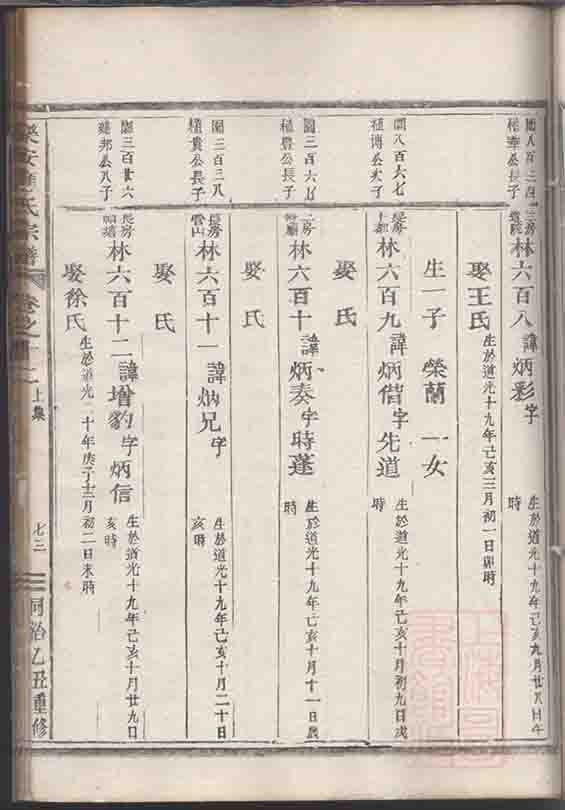 三房
林六百八諱炳彩字
生於道光十九年己亥九月廿八日午時
娶王氏
生於道光十九年己亥三月初一日卯時
生一子榮蘭一女
圖八百六七
植傳公次子
長房
林六百九諱炳偕字先道
生於道光十九年己亥十月初九日戌時
娶氏
圖三百六七
植豊公長子
二房
林六百十諱炳奏字時蓬
生於道光十九年己亥十月十一日辰時
娶氏
圖三百三八
植貴公長子
長房
雲山
林六百十一諱炳兄字
生於道光十九年己亥十月二十日亥時
娶氏
圖三百廿六
建邦公八子
長房
林六百十二諱增豹字炳信
生於道光十九年己亥十月廿九日亥時
娶徐氏
生於道光二十年庚子十二月初二日未時
氏宗譜
卷之
上集
七三
同治乙丑重修